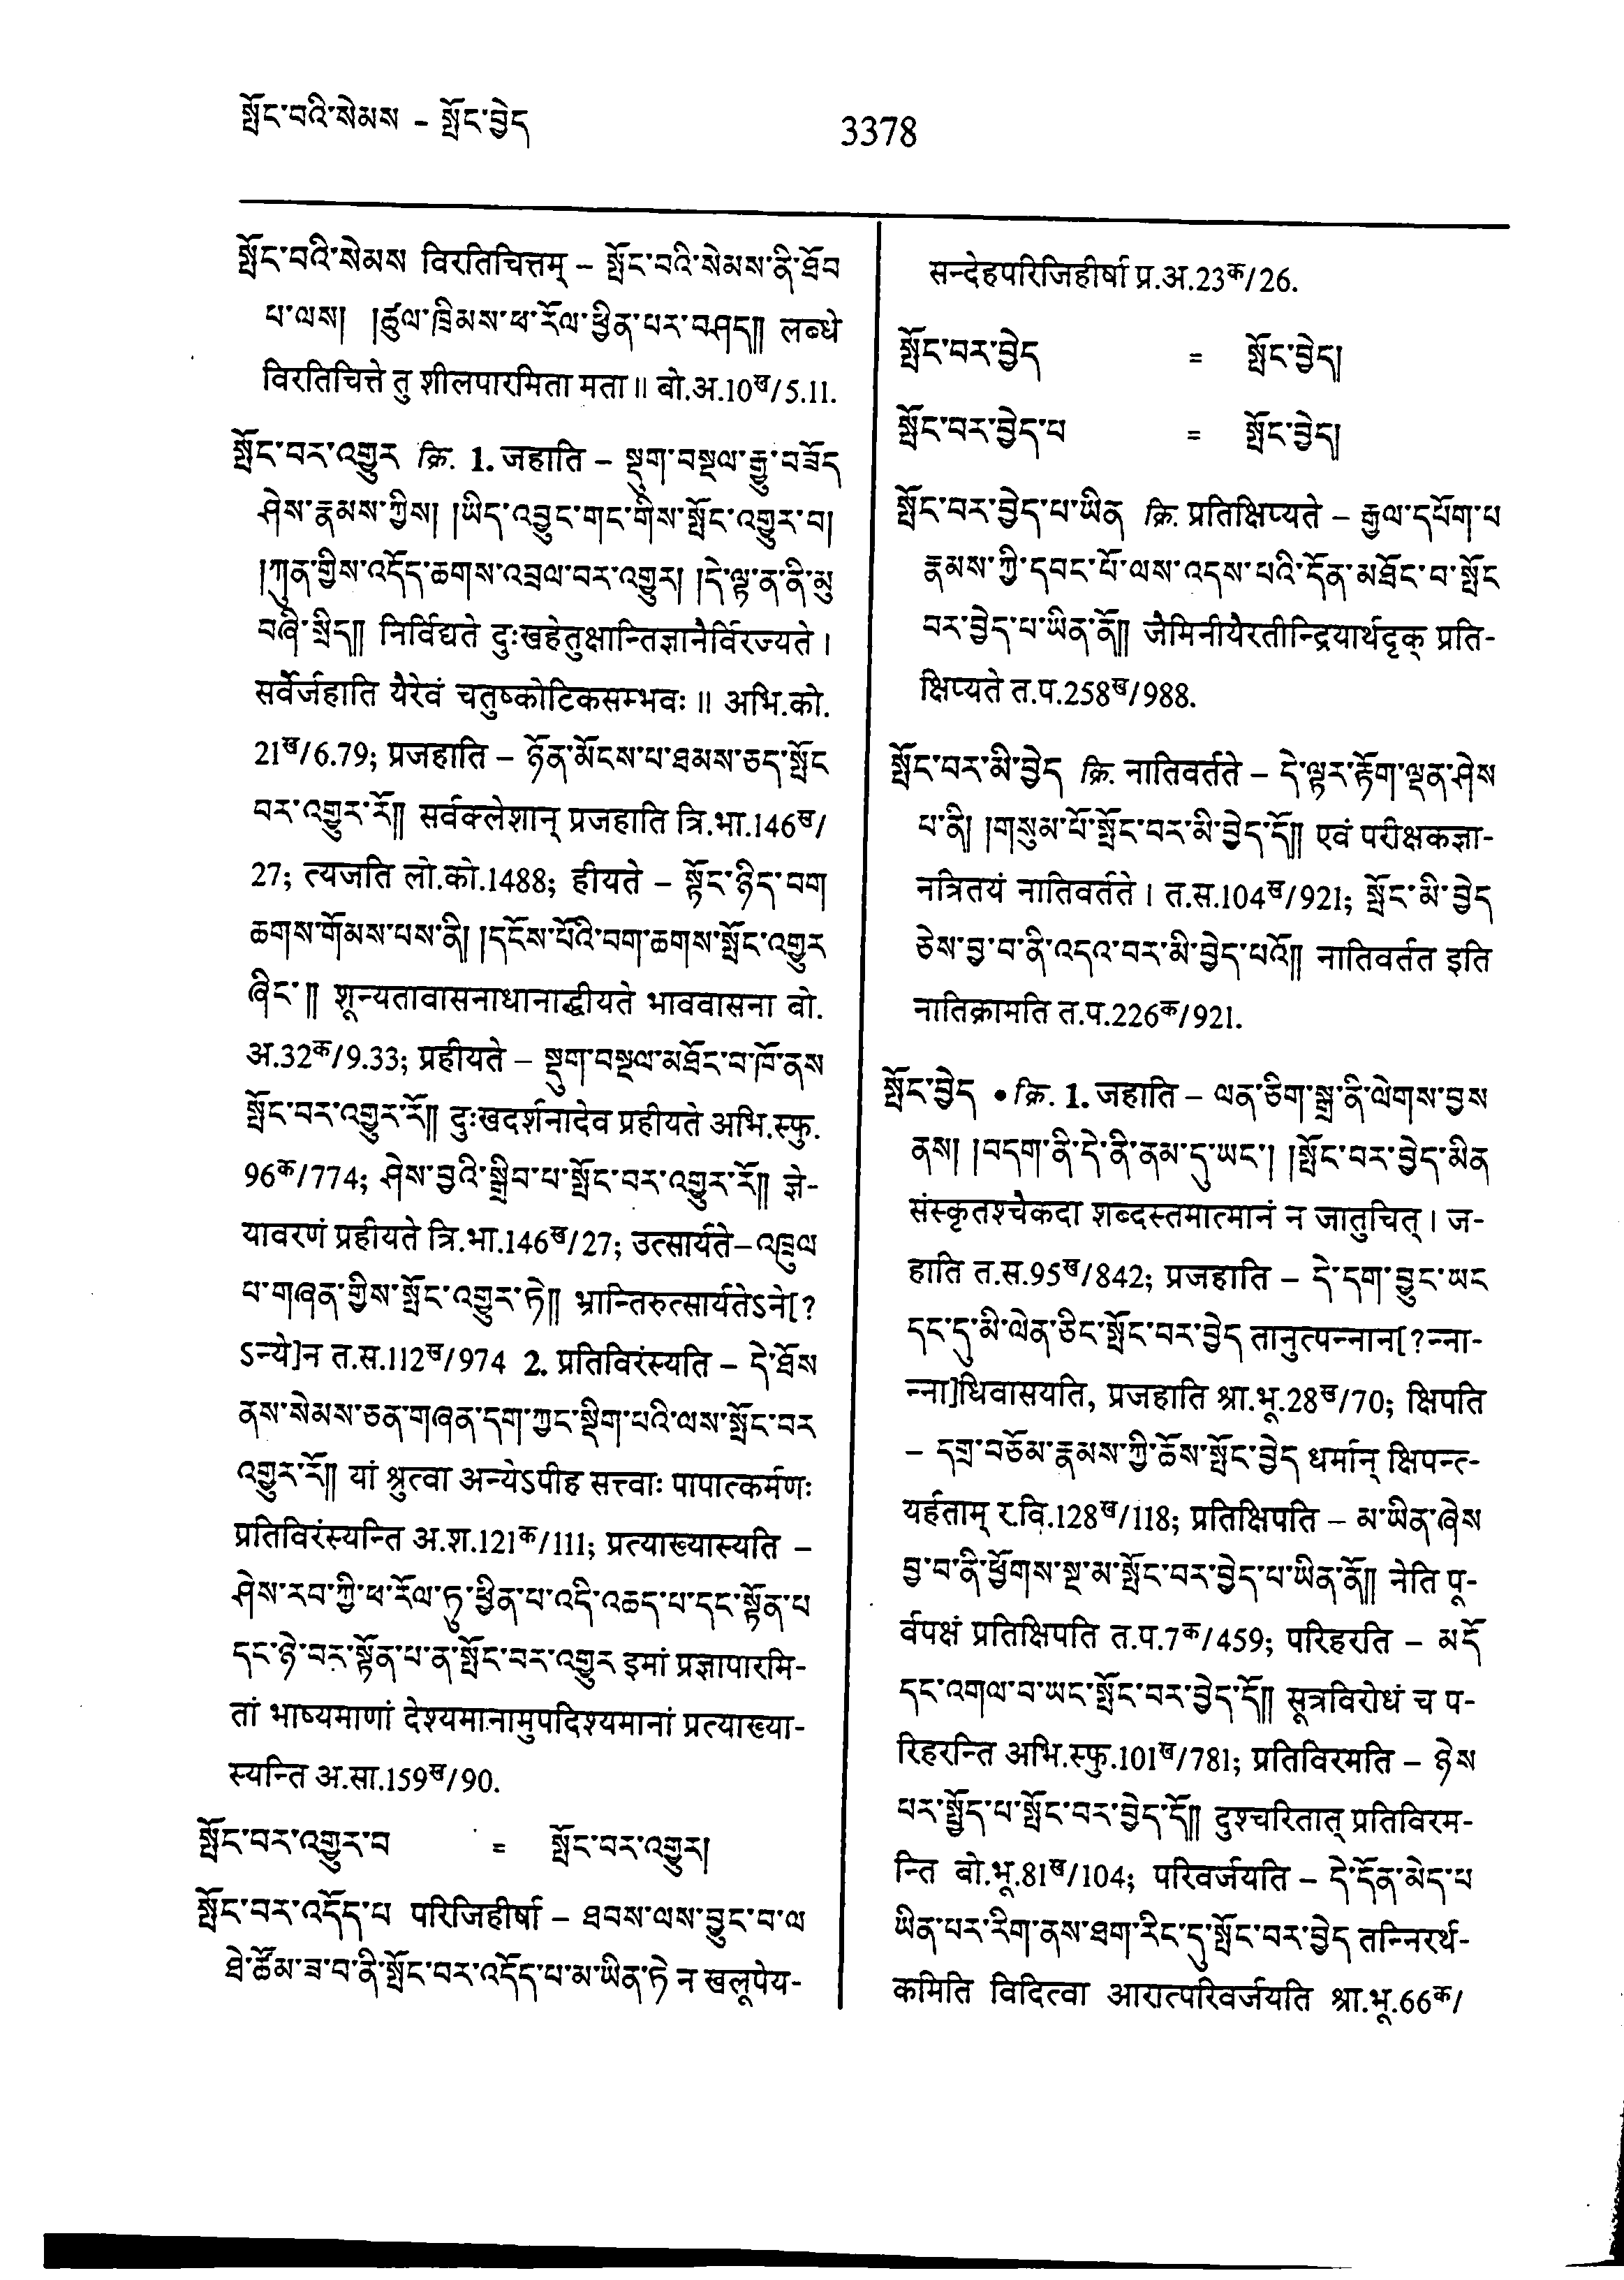 སྤོང་བའི་སེམས – སྤོང་བྱེད
3378
སྤོང་བའི་སེམས विरतिचित्तम् – སྤོང་བའི་སེམས་ནི་ཐོབ
པ་ལས། །ཚུལ་ཁྲིམས་ཕ་རོལ་ཕྱིན་པར་བཤད།། लब्धे
विरतिचित्ते तु शीलपारमिता मता ॥ बो.अ.10ख/5.11.
སྤོང་བར་འགྱུར क्रि. 1. जहाति – སྡུག་བསྔལ་རྒྱུ་བཟོད
ཤེས་རྣམས་ཀྱིས། །ཡིད་འབྱུང་གང་གིས་སྤོང་འགྱུར་བ།
།ཀུན་གྱིས་འདོད་ཆགས་འབྲལ་བར་འགྱུར། །དེ་ལྟ་ན་ནི་མུ
བཞི་སྲིད།། निर्विद्यते दुःखहेतुक्षान्तिज्ञानैर्विरज्यते ।
सर्वैर्जहाति यैरेवं चतुष्कोटिकसम्भवः ॥ अभि.को.
21ख/6.79; प्रजहाति – ཉོན་མོངས་པ་ཐམས་ཅད་སྤོང
བར་འགྱུར་རོ།། सर्वक्लेशान् प्रजहाति त्रि.भा.146ख/
27; त्यजति लो.को.1488; हीयते – སྟོང་ཉིད་བག
ཆགས་གོམས་པས་ནི། །དངོས་པོའི་བག་ཆགས་སྤོང་འགྱུར
ཞིང་།། शून्यतावासनाधानाद्धीयते भाववासना बो.
अ.32क/9.33; प्रहीयते – སྡུག་བསྔལ་མཐོང་བ་ཁོ་ནས
སྤོང་བར་འགྱུར་རོ།། दुःखदर्शनादेव प्रहीयते अभि.स्फु.
96क/774; ཤེས་བྱའི་སྒྲིབ་པ་སྤོང་བར་འགྱུར་རོ།། ज्ञे-
यावरणं प्रहीयते त्रि.भा.146ख/27; उत्सार्यते–འཁྲུལ
པ་གཞན་གྱིས་སྤོང་འགྱུར་ཏེ།། भ्रान्तिरुत्सार्यतेऽने[?
ऽन्ये]न त.स.112ख/974 2. प्रतिविरंस्यति – དེ་ཐོས
ནས་སེམས་ཅན་གཞན་དག་ཀྱང་སྡིག་པའི་ལས་སྤོང་བར
འགྱུར་རོ།། यां श्रुत्वा अन्येऽपीह सत्त्वाः पापात्कर्मणः
प्रतिविरंस्यन्ति अ.श.121क/111; प्रत्याख्यास्यति –
ཤེས་རབ་ཀྱི་ཕ་རོལ་ཏུ་ཕྱིན་པ་འདི་འཆད་པ་དང་སྟོན་པ
དང་ཉེ་བར་སྟོན་པ་ན་སྤོང་བར་འགྱུར इमां प्रज्ञापारमि-
तां भाष्यमाणां देश्यमानामुपदिश्यमानां प्रत्याख्या-
स्यन्ति अ.सा.159ख/90.
སྤོང་བར་འགྱུར་བ = སྤོང་བར་འགྱུར།
སྤོང་བར་འདོད་པ परिजिहीर्षा – ཐབས་ལས་བྱུང་བ་ལ
ཐེ་ཚོམ་ཟ་བ་ནི་སྤོང་བར་འདོད་པ་མ་ཡིན་ཏེ न खलूपेय-
सन्देहपरिजिहीर्षा प्र.अ.23क/26.
སྤོང་བར་བྱེད = སྤོང་བྱེད།
སྤོང་བར་བྱེད་པ = སྤོང་བྱེད།
སྤོང་བར་བྱེད་པ་ཡིན क्रि. प्रतिक्षिप्यते – རྒྱལ་དཔོག་པ
རྣམས་ཀྱི་དབང་པོ་ལས་འདས་པའི་དོན་མཐོང་བ་སྤོང
བར་བྱེད་པ་ཡིན་ནོ།། जैमिनीयैरतीन्द्रियार्थदृक् प्रति-
क्षिप्यते त.प.258ख/988.
སྤོང་བར་མི་བྱེད क्रि. नातिवर्तते – དེ་ལྟར་རྟོག་ལྡན་ཤེས
པ་ནི། །གསུམ་པོ་སྤོང་བར་མི་བྱེད་དོ།། एवं परीक्षकज्ञा-
नत्रितयं नातिवर्तते । त.स.104ख/921; སྤོང་མི་བྱེད
ཅེས་བྱ་བ་ནི་འདའ་བར་མི་བྱེད་པའོ།། नातिवर्तत इति
नातिक्रामति त.प.226क/921.
སྤོང་བྱེད • क्रि. 1. जहाति – ལན་ཅིག་སྒྲ་ནི་ལེགས་བྱས
ནས། །བདག་ནི་དེ་ནི་ནམ་དུ་ཡང་། །སྤོང་བར་བྱེད་མིན
संस्कृतश्चैकदा शब्दस्तमात्मानं न जातुचित् । ज-
हाति त.स.95ख/842; प्रजहाति – དེ་དག་བྱུང་ཡང
དང་དུ་མི་ལེན་ཅིང་སྤོང་བར་བྱེད तानुत्पन्नान[?न्ना-
न्ना]धिवासयति, प्रजहाति श्रा.भू.28ख/70; क्षिपति
– དགྲ་བཅོམ་རྣམས་ཀྱི་ཆོས་སྤོང་བྱེད धर्मान् क्षिपन्त्-
यर्हताम् र.वि.128ख/118; प्रतिक्षिपति – མ་ཡིན་ཞེས
བྱ་བ་ནི་ཕྱོགས་སྔ་མ་སྤོང་བར་བྱེད་པ་ཡིན་ནོ།། नेति पू-
र्वपक्षं प्रतिक्षिपति त.प.7क/459; परिहरति – མདོ
དང་འགལ་བ་ཡང་སྤོང་བར་བྱེད་དོ།། सूत्रविरोधं च प-
रिहरन्ति अभि.स्फु.101ख/781; प्रतिविरमति – ཉེས
པར་སྤྱོད་པ་སྤོང་བར་བྱེད་དོ།། दुश्चरितात् प्रतिविरम-
न्ति बो.भू.81ख/104; परिवर्जयति – དེ་དོན་མེད་པ
ཡིན་པར་རིག་ནས་ཐག་རིང་དུ་སྤོང་བར་བྱེད तन्निरर्थ-
कमिति विदित्वा आरात्परिवर्जयति श्रा.भू.66क/